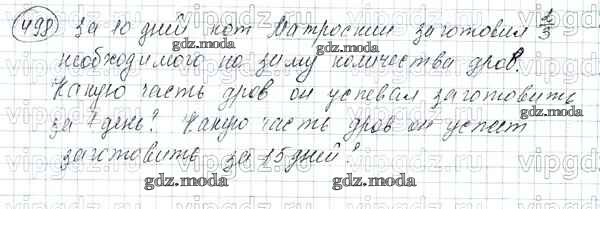 498 За 10 дней кот Матроскин заготовил 1/3
необходимого на зиму количества дров.
Какую часть дров он успевал заготовить
за 1 день? Какую часть дров он успеет
заготовить за 15 дней?
gdz.moda
gdz.moda
gdz.moda
gdz.moda
gdz.moda
gdz.moda